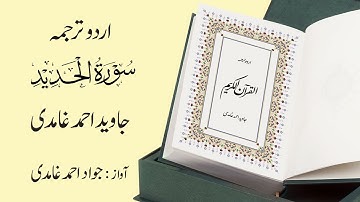 اردو ترجمہ
سُوْرَةُ الْحَدِيْد
جاوید احمد غامدی
آواز : جواد احمد غامدی
اردو ترجمہ
القرآن الکریم
جاوید احمد غامدی